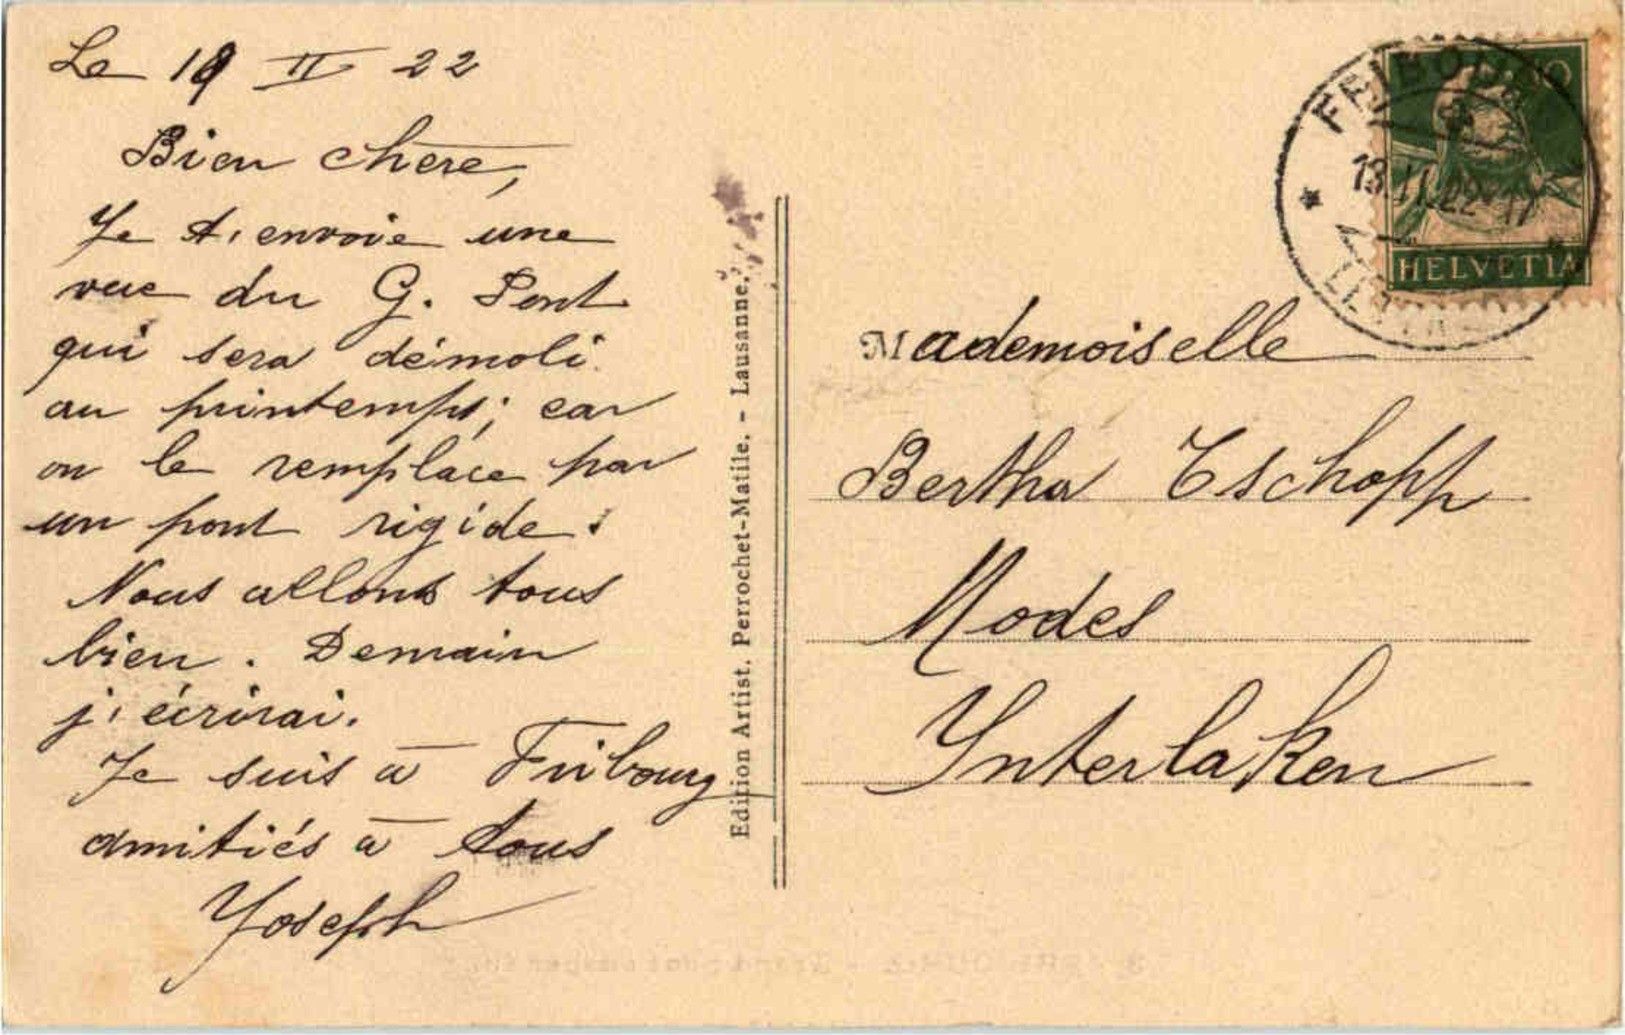 Le 19 II 22
Bien chère,
Je t'envoie une
vue du G. Pont
qui sera démoli
au printemps; car
on le remplace par
un pont rigide.
Nous allons tous
bien. Demain
j'écrirai.
Je suis à Fribourg
amitiés à tous
Joseph
Edition Artist. Perrochet-Matile. - Lausanne.
HELVETIA
Mademoiselle
Bertha Tschopp
Modes
Interlaken